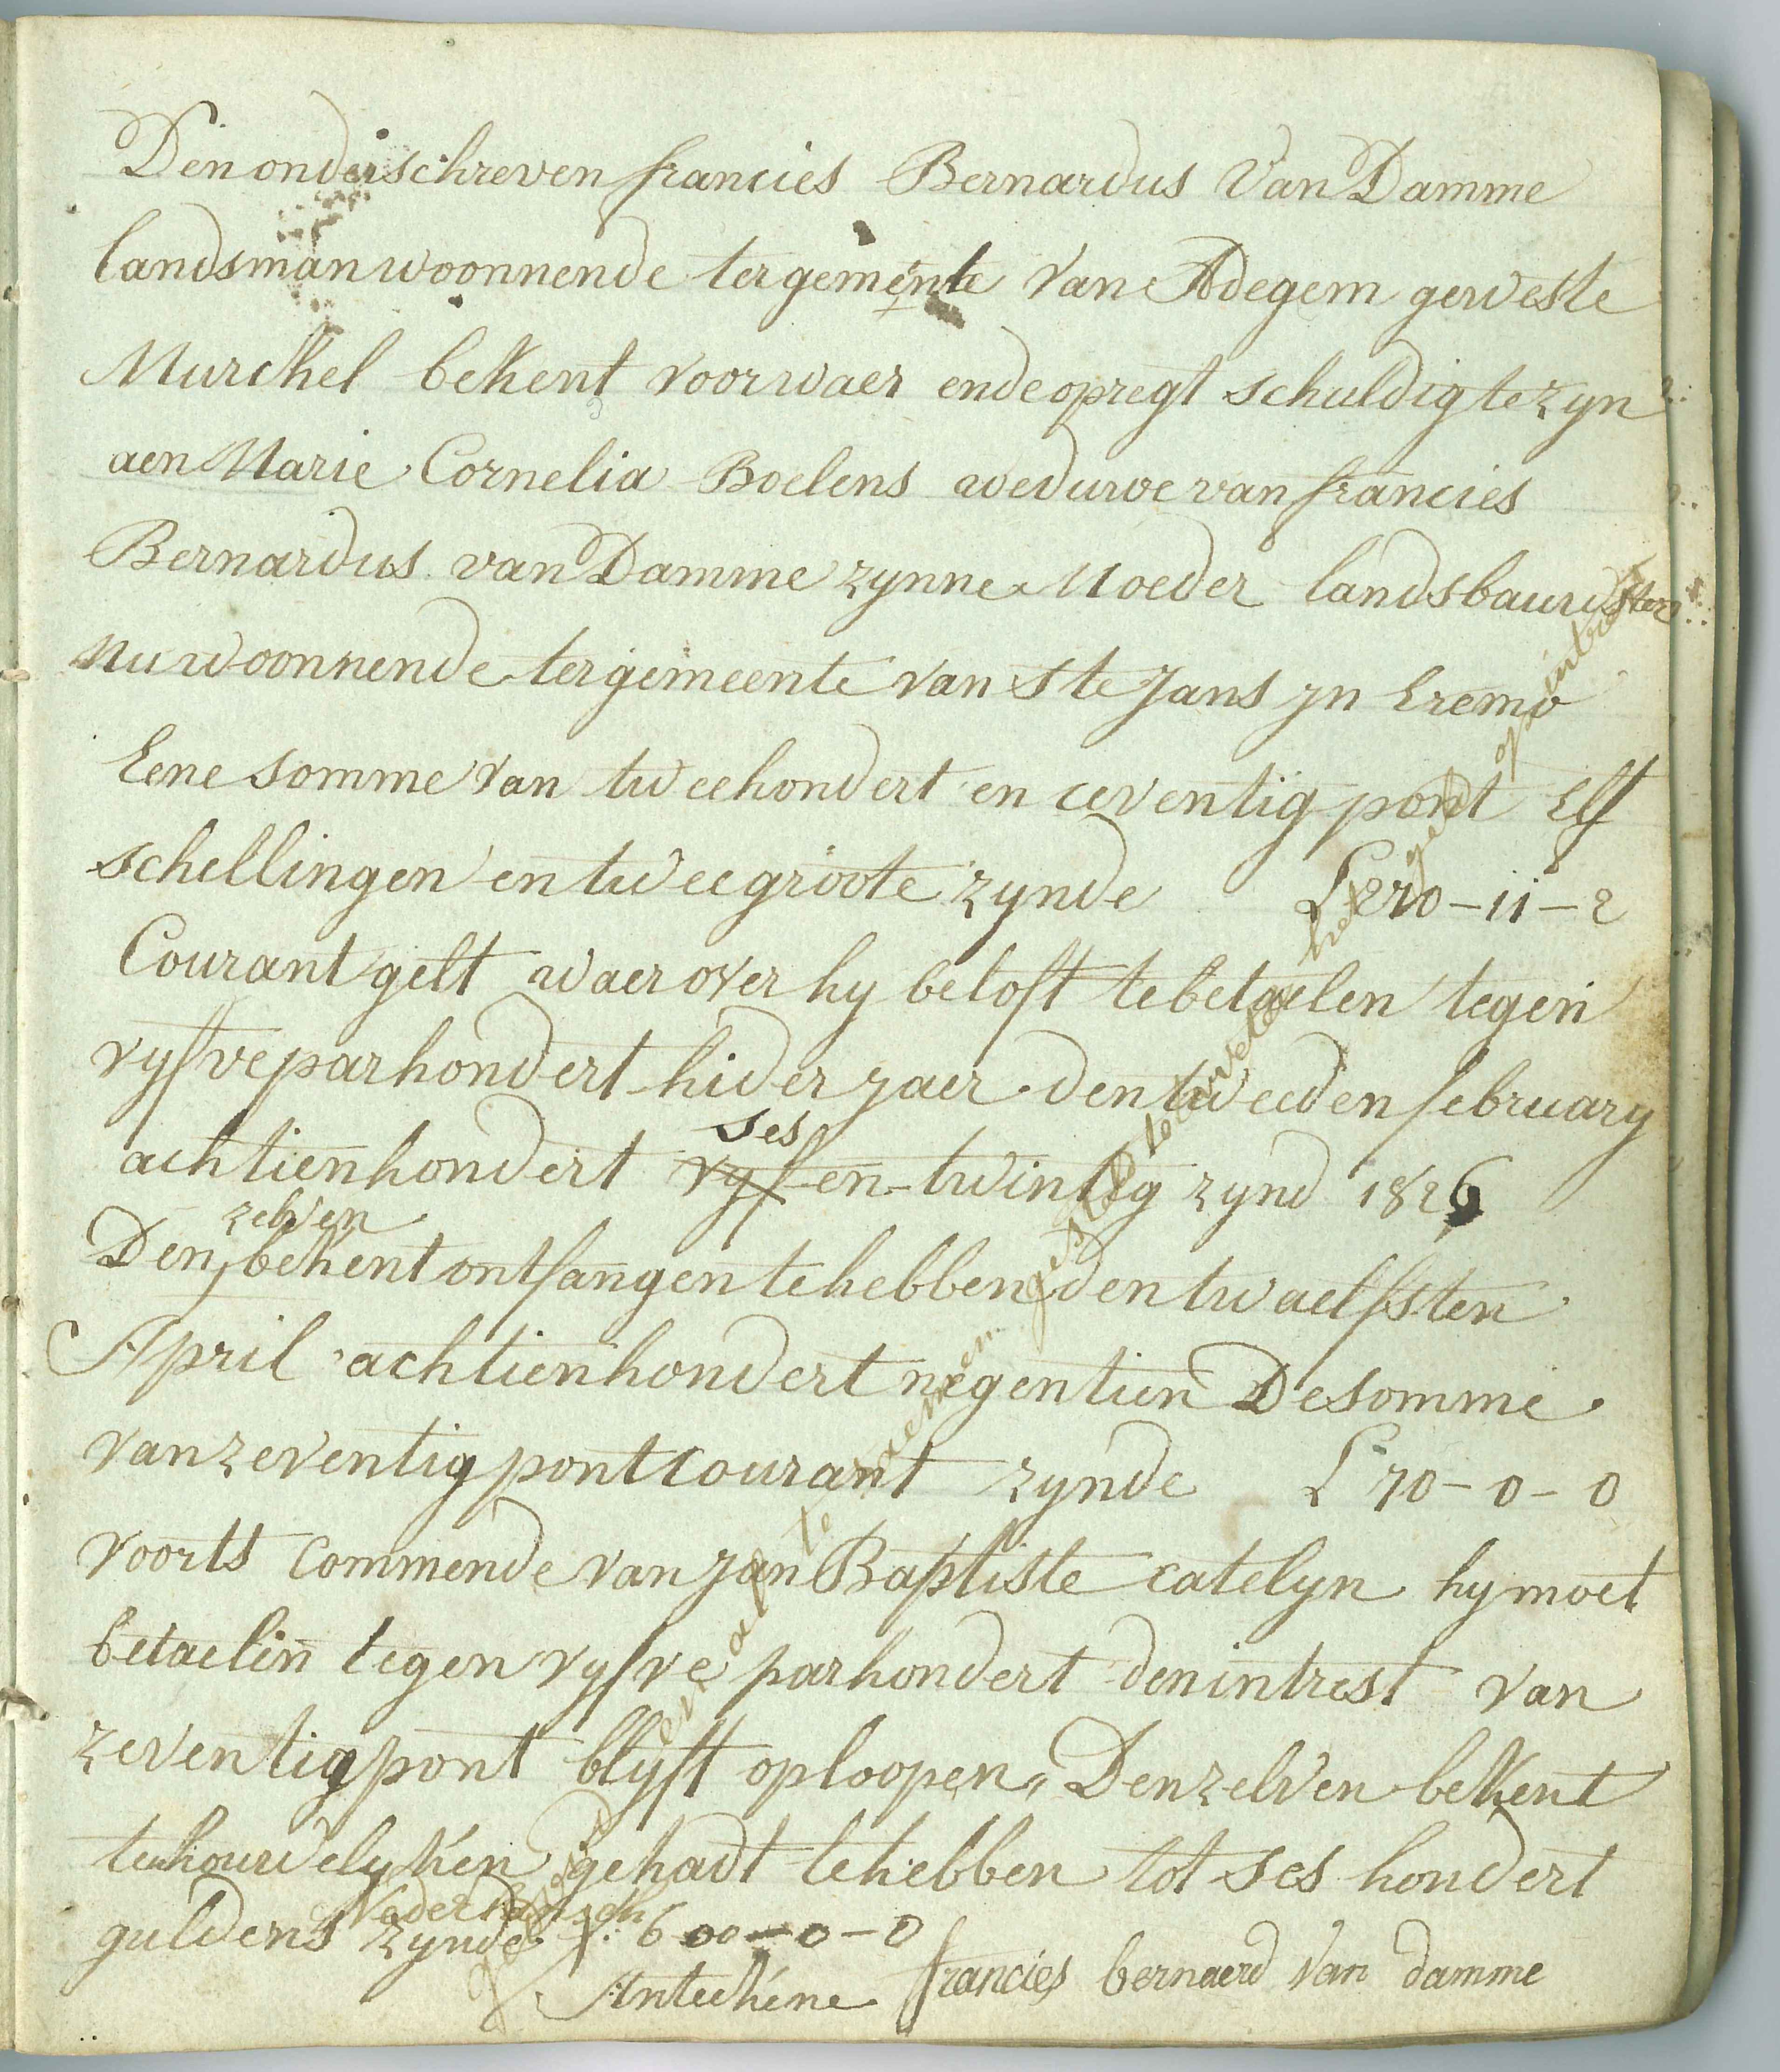 Den onderschreven francies Bernardus Van Damme
landsman woonnende ter gemente van Adegem geweste
Murckel bekent voorwaer ende opregt schuldig te zyn
aen Marie Cornelia Boelens weduwe van francies
Bernardus van Damme zynne Moeder landsbauwster
nu woonnende ter gemeente van Ste Jans jn Eremo
Eene somme van tweehondert en ceventig pont Elf
schellingen en twee groote zynde £ 270-11-2
Courant gelt waer over hy beloft te betaelen tegen
vyfve par hondert hider jaer den tweeden february
achtienhondert vyf ses en twintig zynd 1826
Den zelven bekent ontfangen te hebben den twaelfsten
April achtienhondert negentien De somme
van zeventig pont Courant zynde £ 70-0-0
voorts Commende van jan Baptiste Catelyn hy moet
betaelen tegen vyfve par hondert den intrest van
zeventig pont blyft oploopen, Denzelven bekent
ten houwelyken gehadt te hebben tot ses hondert
guldens Nederlansch zynde f. 600-0-0
francies bernaerd Van damme
en af te neemen gesteld te
het geld op intrest